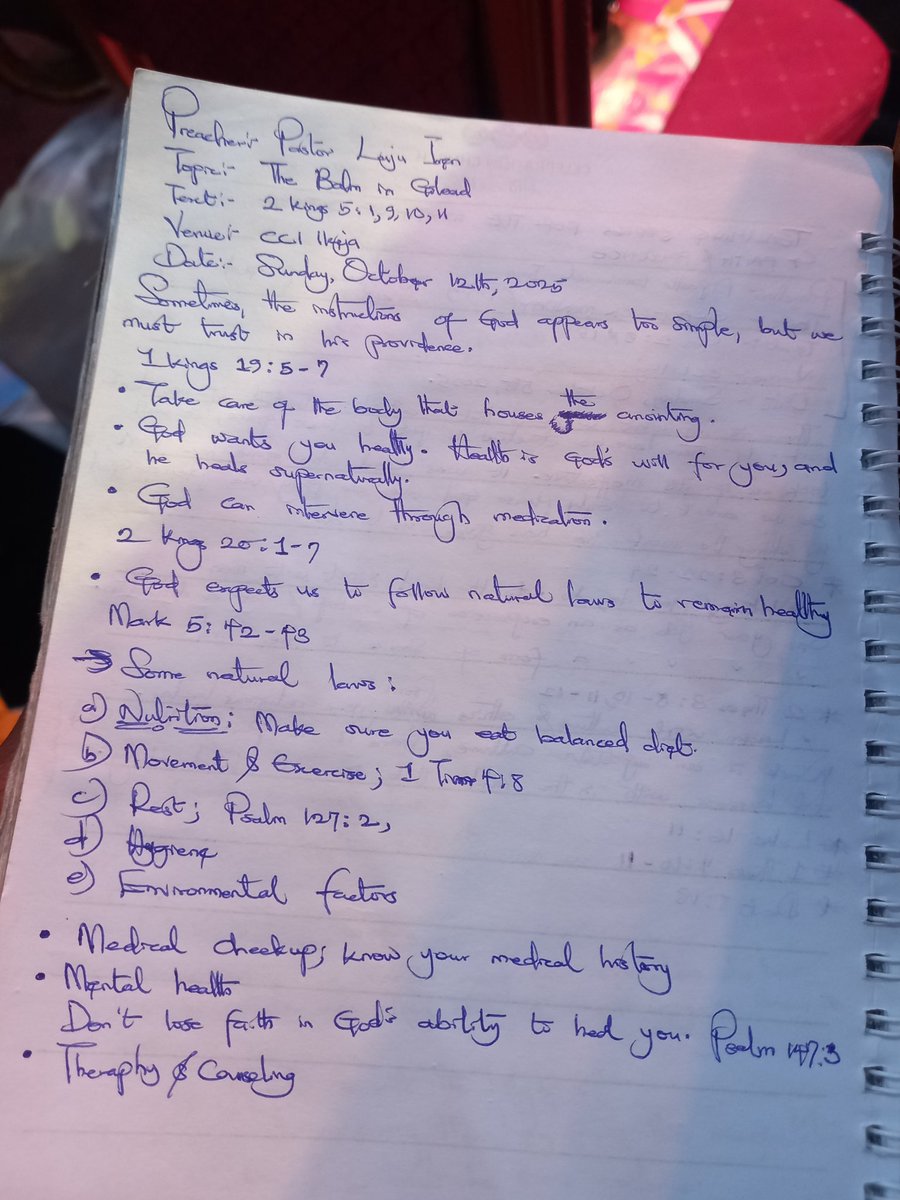 Preacher:- Pastor
Topic:- The Balm in Gilead
Text:- 2 Kings 5:1,9,10,11
Venue:- CCI Ikeja
Date:- Sunday, October 12th, 2025
Sometimes, the instructions of God appears too simple, but we
must trust in his providence.
1 Kings 19:5-7
• Take care of the body that houses the anointing.
• God wants you healthy. Health is God's will for you, and
he heals supernaturally.
• God can intervene through medication.
2 Kings 20:1-7
• God expects us to follow natural laws to remain healthy
Mark 5:42-43
→ Some natural laws:
a) Nutrition: Make sure you eat balanced diet.
b) Movement & Exercise; 1 Tim 4:8
c) Rest; Psalm 127:2,
d) Hygiene
e) Environmental factors
• Medical checkup; know your medical history
• Mental health
Don't lose faith in God's ability to heal you. Psalm 147:3
• Theraphy & Counseling